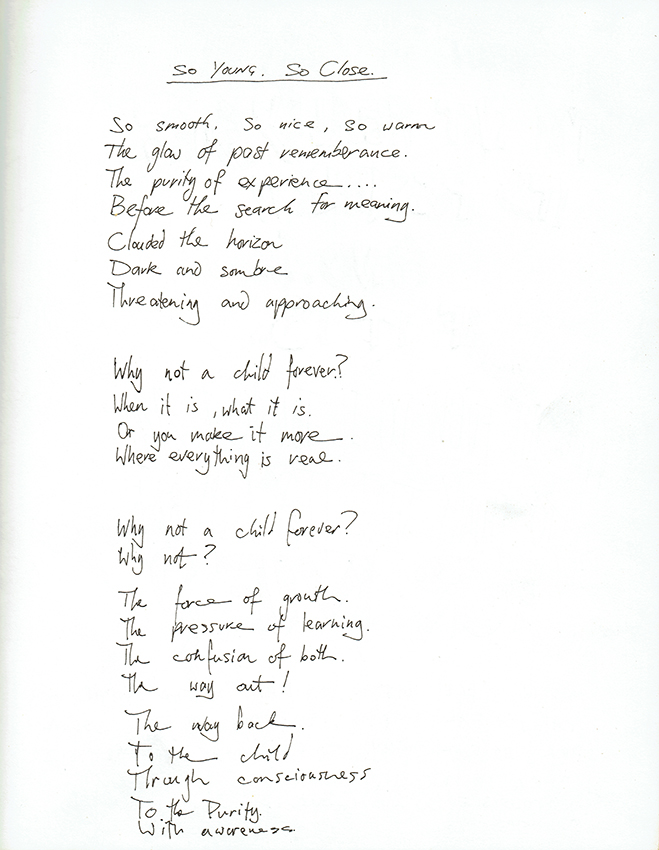 So Young. So Close.
So smooth. So nice, so warm
The glow of past rememberance.
The purity of experience....
Before the search for meaning.
Clouded the horizon
Dark and sombre
Threatening and approaching.
Why not a child forever?
When it is, what it is.
Or you make it more.
Where everything is real.
Why not a child forever?
Why not?
The force of growth.
The pressure of learning.
The confusion of both.
The way out!
The way back.
To the child
Through consciousness
To the Purity.
With awareness